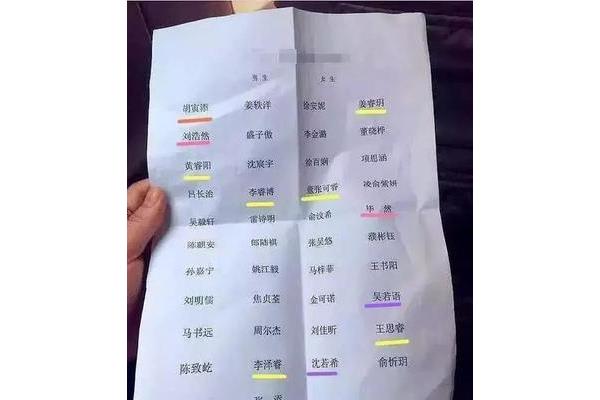 男生 女生
胡寅添 姜轶洋 徐安妮 姜睿玥
刘浩然 盛子傲 李金潞 董晓桦
黄睿阳 沈宸宇 徐百娴 项思涵
吕长治 李睿博 张可睿 凌俞紫妍
吴骕轩 雷诗明 俞汶希 毕 然
陈麒安 郎陆祺 张昊悠 濮彬钰
孙嘉宁 姚江毅 马梓菲 王书阳
刘明儒 焦贞荃 金可诺 吴若语
马书远 周尔杰 刘佳昕 王思睿
陈致屹 李泽睿 沈若希 俞忻玥
张